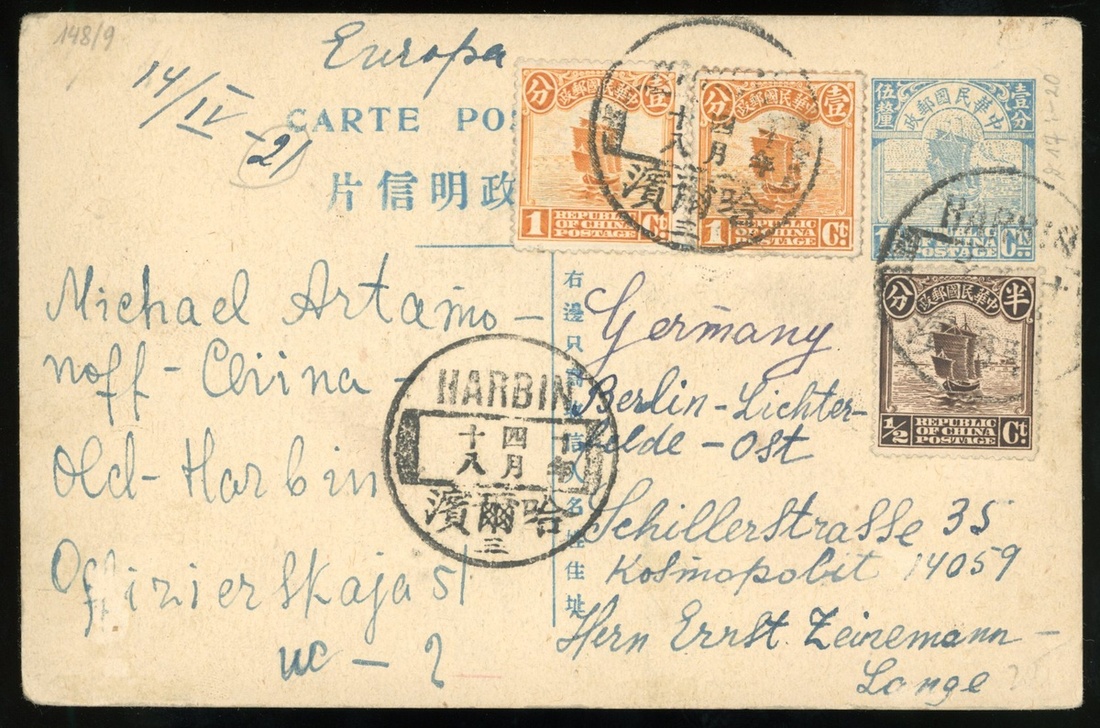 148/9
Europa
14/IV-21
CARTE POS
片信明政
分 壹
政郵國民華中
1 REPUBLIC OF CHINA POSTAGE Ct.
分 壹
1 REPUBLIC OF CHINA POSTAGE Ct.
伍釐 壹分
政郵國民華中
REPUBLIC OF CHINA POSTAGE Cts.
十八 四月 十年
濱爾哈
三
分 半
政郵國民華中
1/2 REPUBLIC OF CHINA POSTAGE Ct.
Michael Artamo-
noff - China -
Old-Harbin
Offizierskaja 51
HARBIN
十八 四月 十年
濱爾哈
三
右邊只
信人名
住址
Germany
Berlin-Lichter-
felde-Ost
Schillerstrasse 35
Kosmopolit 14059
Herrn Ernst Zeinemann-
Lange